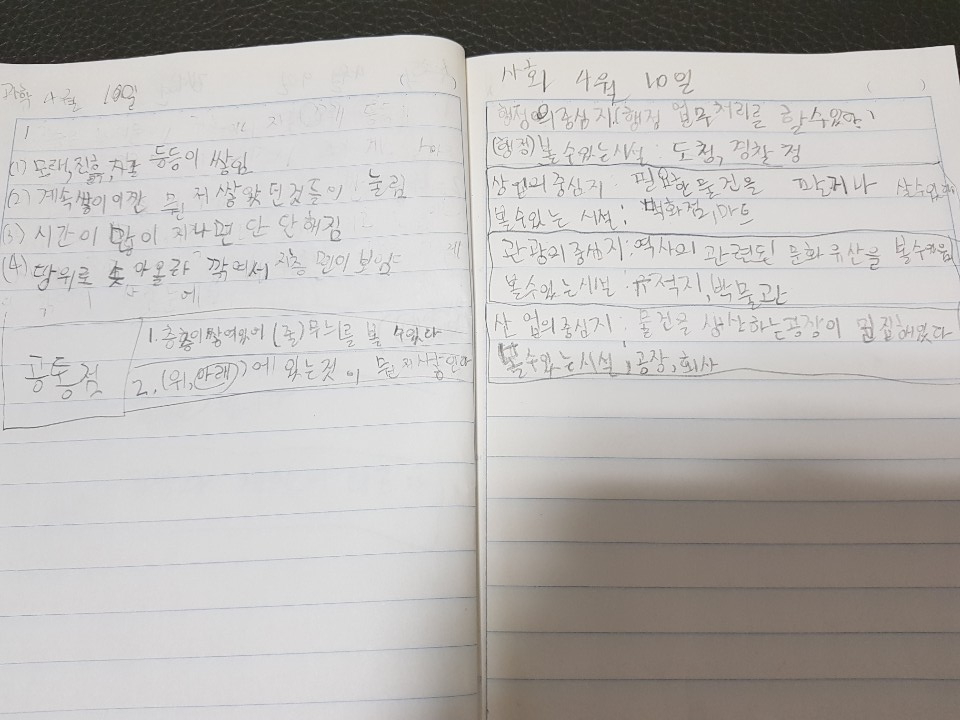 과학 4월 10일
(1) 모래, 진흙, 자갈 등등이 쌓임
(2) 계속쌓이이깐 뭔저쌓았던것들이 눌림
(3) 시간이 많이 지나면 단단해짐
(4) 땅위로 솟아올라 깎여서 지층면이 보임
공통점
1. 층층이쌓여있어 (줄)무늬를 볼 수있다
2. (위, 아래)에 있는것이 뭔저
사회 4월 10일
행정의중심지(행정 업무처리를 할수있다)
(행정)볼수있는시설: 도청, 경찰청
상업의중심지: 필요한물건을 파거나 살수있다
볼수있는 시설: 백화점, 마트
관광의중심지: 역사의 관련된 문화유산을 볼수있음
볼수있는시설: 유적지, 박물관
산업의중심지: 물건을 생산하는공장이 밀집해있다
볼수있는시설, 공장, 회사